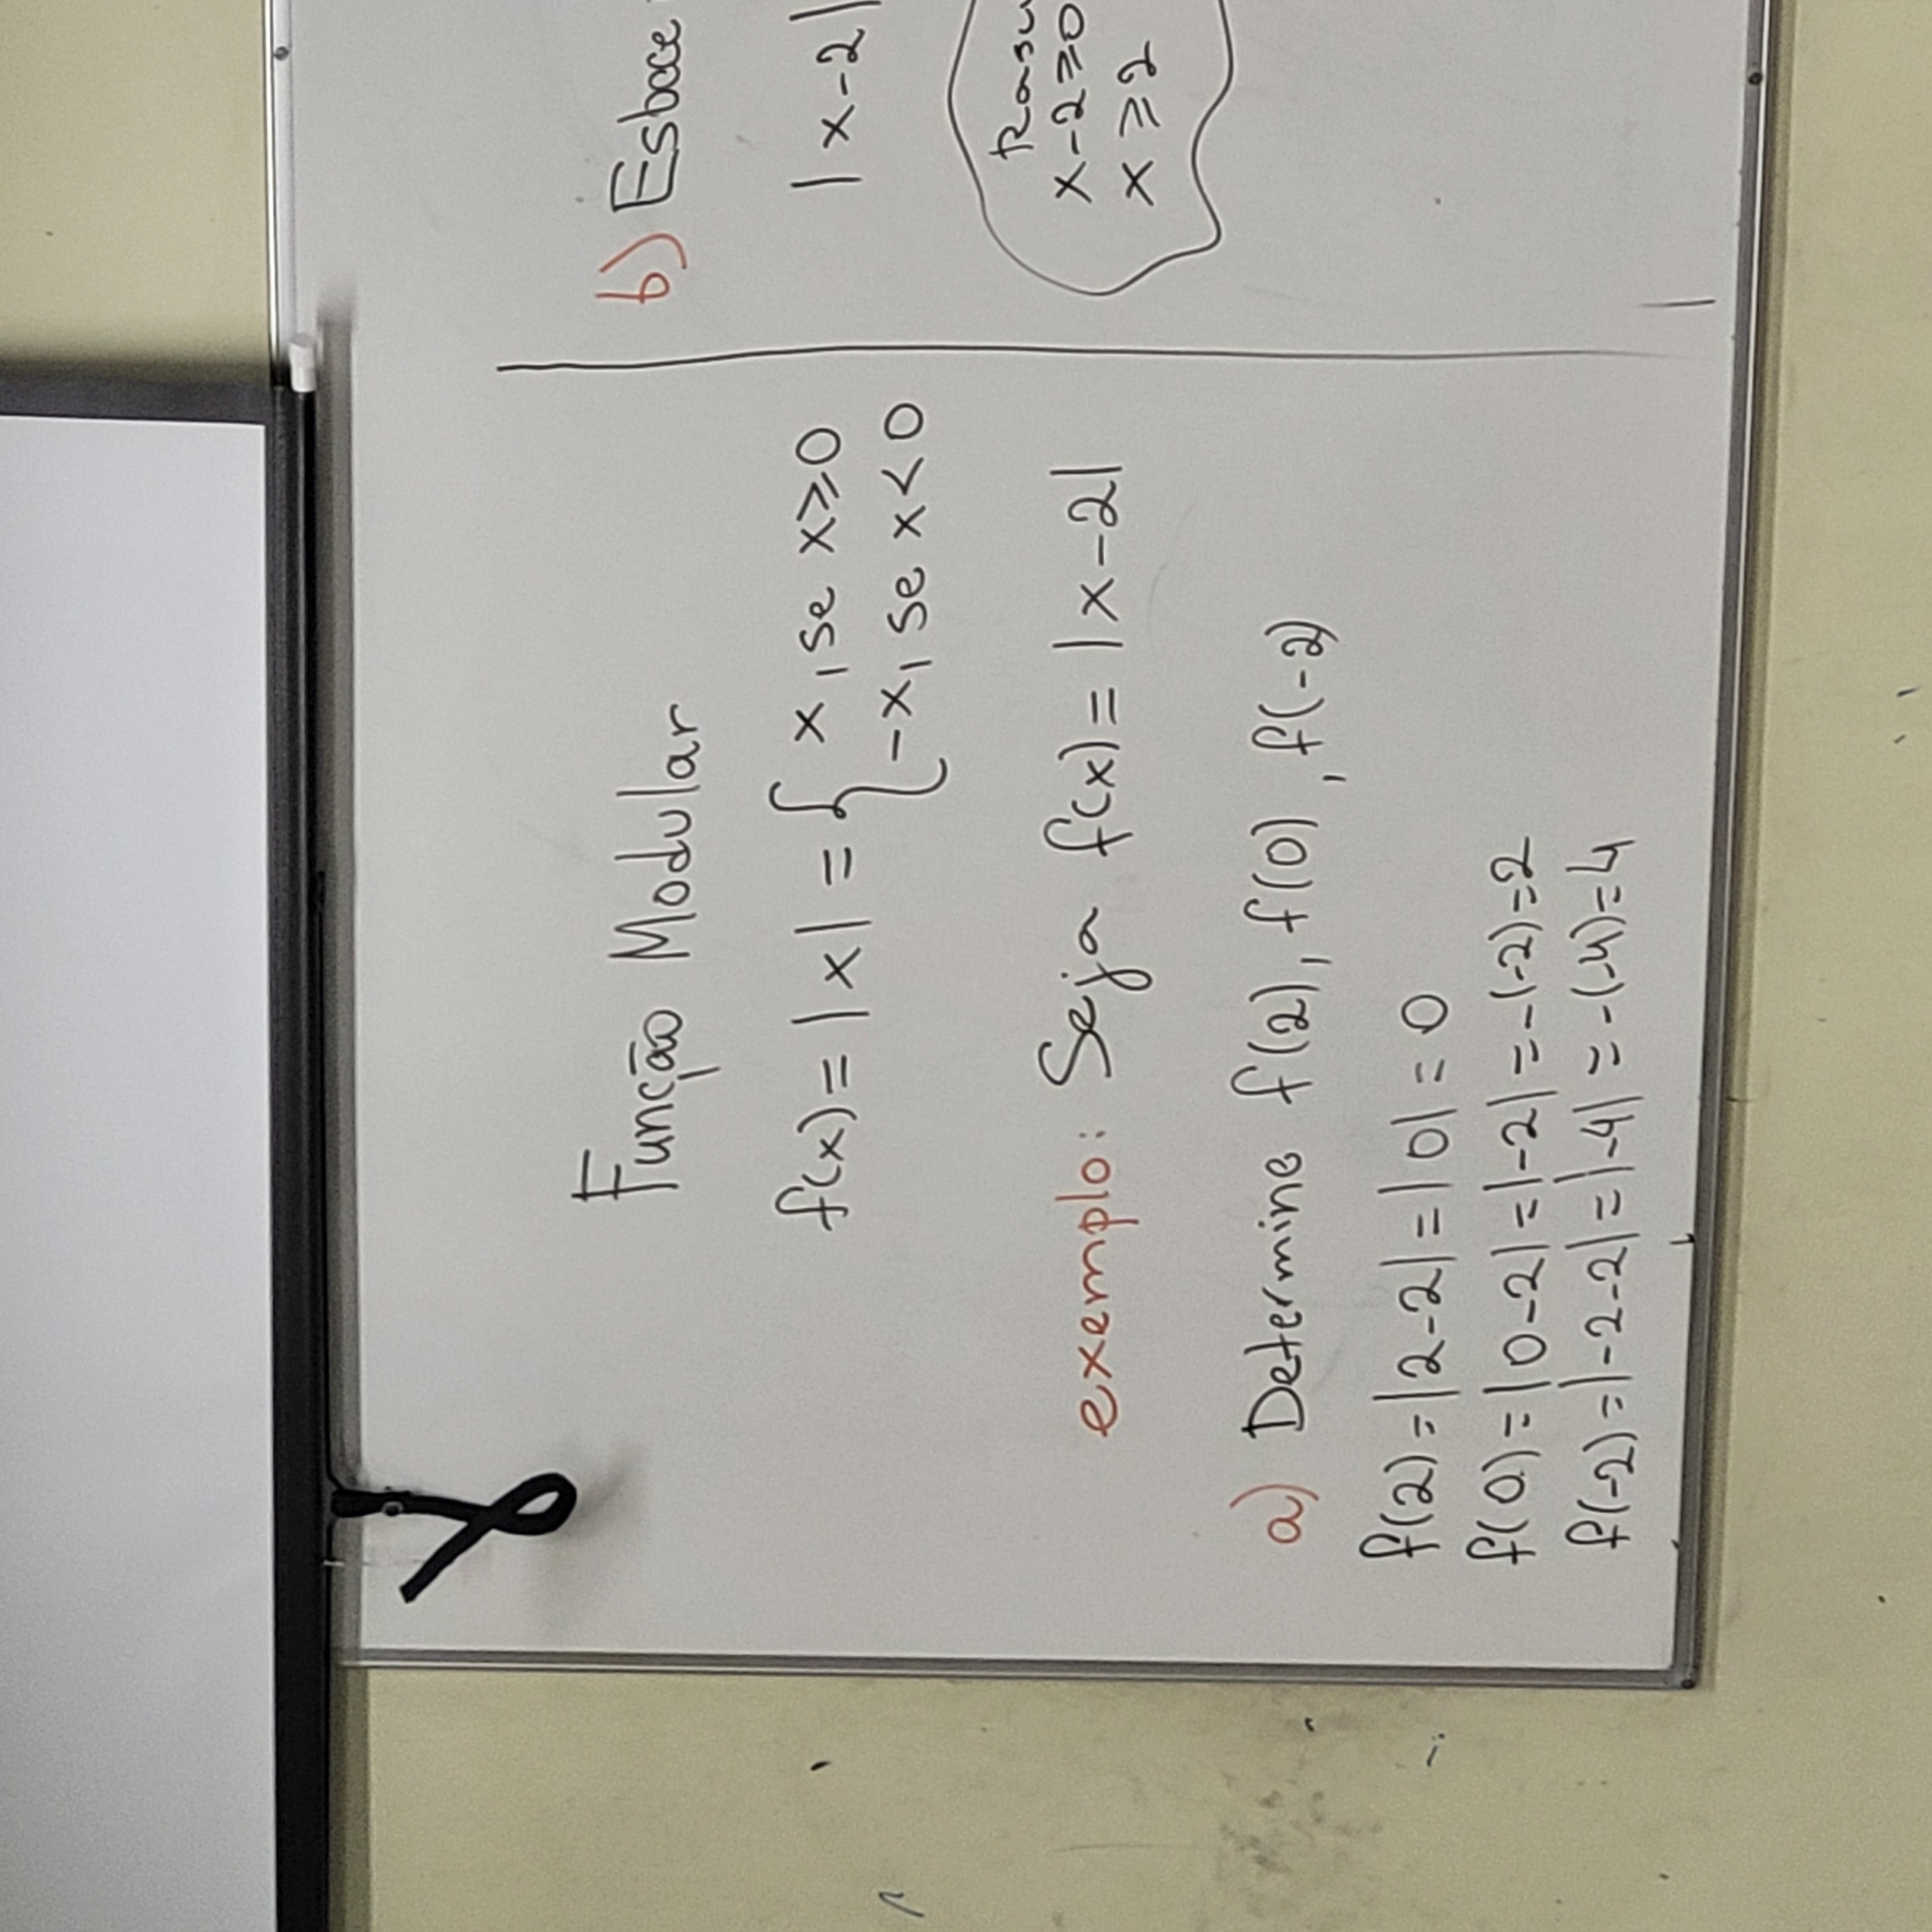 Função Modular
f(x) = |x| = { x, se x ⩾ 0
-x, se x < 0
exemplo: Seja f(x) = |x-2|
a) Determine f(2), f(0), f(-2)
f(2) = |2-2| = |0| = 0
f(0) = |0-2| = |-2| = -(-2) = 2
f(-2) = |-2-2| = |-4| = -(-4) = 4
b) Esboce
|x-2|
x-2 ⩾ 0
x ⩾ 2